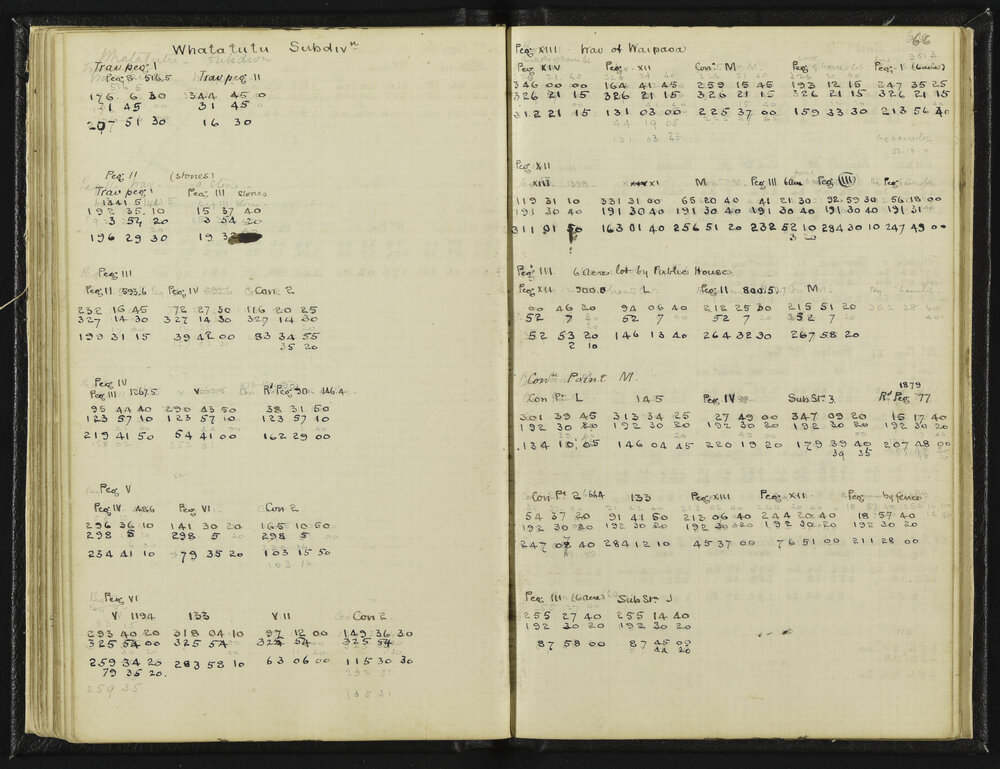 Whatatutu Subdivn
Trav peg I
Peg 3 516.5 Trav peg II
176 6 30 344 45 0
21 45 31 45
207 51 30 16 30
Peg II (stones)
Trav peg I Peg III stones
1441 5
192 35.10 15 37 40
3 54 20 3 54 20
196 29 30 19 32
Peg III
Peg II 593.6 Peg IV Con 2
232 16 45 72 27 30 116 20 25
327 14 30 327 14 30 327 14 30
199 31 15 39 42 00 83 34 55
35 20
Peg IV
Peg III 1267.5 V Rd Peg 90 446.4
95 44 40 290 43 50 38 31 50
123 57 10 123 57 10 123 57 10
219 41 50 54 41 00 162 29 00
Peg V
Peg IV 486 Peg VI Con 2
296 36 10 141 30 20 165 10 50
298 5 298 5 298 5
234 41 10 79 35 20 103 15 50
103 16
Peg VI
V 1194 133 VII Con 2
293 40 20 318 04 10 97 12 00 149 36 30
325 54 00 325 54 325 54 325 54
259 34 20 283 58 10 63 06 00 115 30 30
79 35 20.
259 35
135 31
66
Peg XIII trav of Waipaoa
Peg XIV Peg XII Con M Peg Peg I (6 acre)
346 00 00 164 41 45 259 15 45 193 12 15 247 35 25
326 21 15 326 21 15 326 21 15 326 21 15 326 21 15
312 21 15 131 03 00 225 37 00 159 33 30 213 56 40
44 19 05
131 03 25
Peg XII
XIII XI M Peg III 6 acre Peg IIII Peg
119 31 10 331 31 00 65 20 40 41 21 30 92 59 30 56 18 00
191 30 40 191 30 40 191 30 40 191 30 40 191 30 40 191 31
311 01 50 163 01 40 256 51 20 232 52 10 284 30 10 247 49 00
Peg III 6 Acre lot by Public House
Peg XII 900.0 L Peg II 800.5 M
00 46 20 94 06 40 212 25 30 215 51 20
52 7 52 7 30 52 7 52 7
52 53 20 146 13 40 264 32 30 267 58 20
2 10
Conn Point M.
1879
Con Pt L 145 Peg IV Sub St 3 Rd Peg 77
301 39 45 313 34 25 27 49 00 347 09 20 15 17 40
192 30 20 192 30 20 192 30 20 192 30 20 192 30 20
134 10 05 146 04 45 220 19 20 179 39 40 207 48 00
39 35
Con Pt 2 666.4 133 Peg XIII Peg XII Peg by fence
54 37 20 91 41 50 213 06 40 244 20 40 18 57 40
192 30 20 192 30 20 192 30 20 192 30 20 192 30 20
247 07 40 284 12 10 45 37 00 76 51 00 211 28 00
Peg III (6 acre) Sub St J
255 27 40 255 14 40
192 30 20 192 30 20
87 58 00 87 45 00
44 20